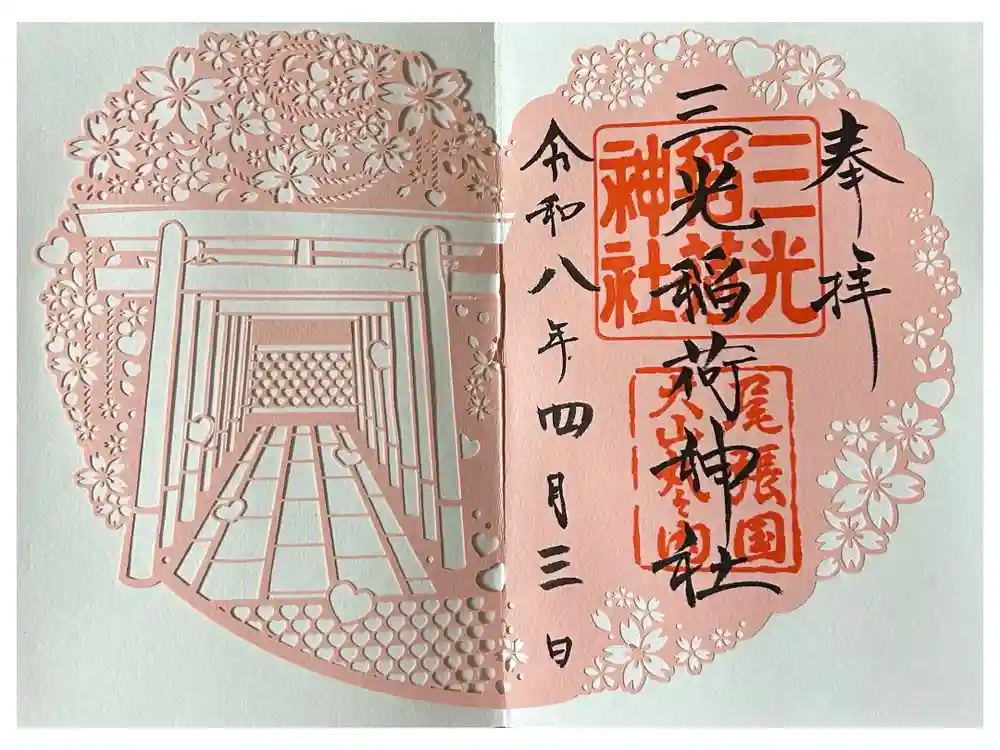 奉拝
三光稲荷神社
三光
稲荷
神社
尾張国
犬山
令和八年四月三日